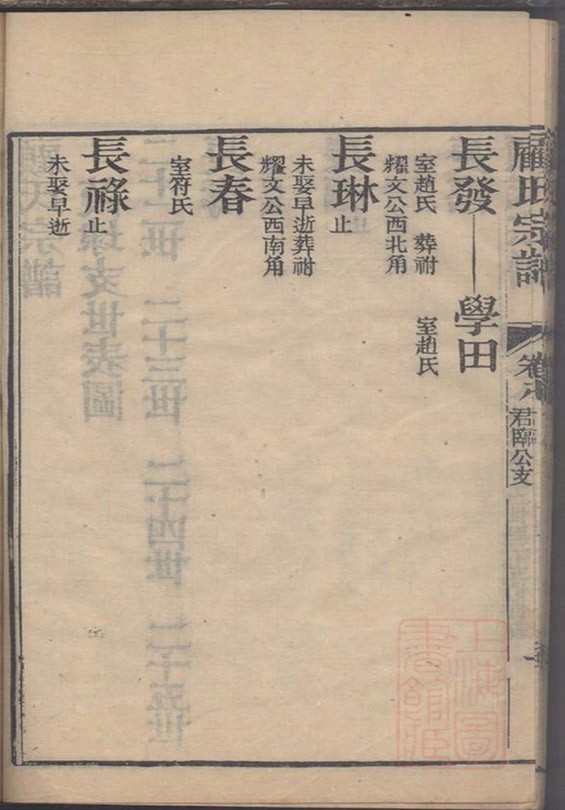 顧氏宗譜
卷八
君臨公支
長發 學田
室趙氏 葬祔 室趙氏
耀文公西北角
長琳 止
未娶早逝葬祔
耀文公西南角
長春
室符氏
長祿 止
未娶早逝
上海圖書館藏